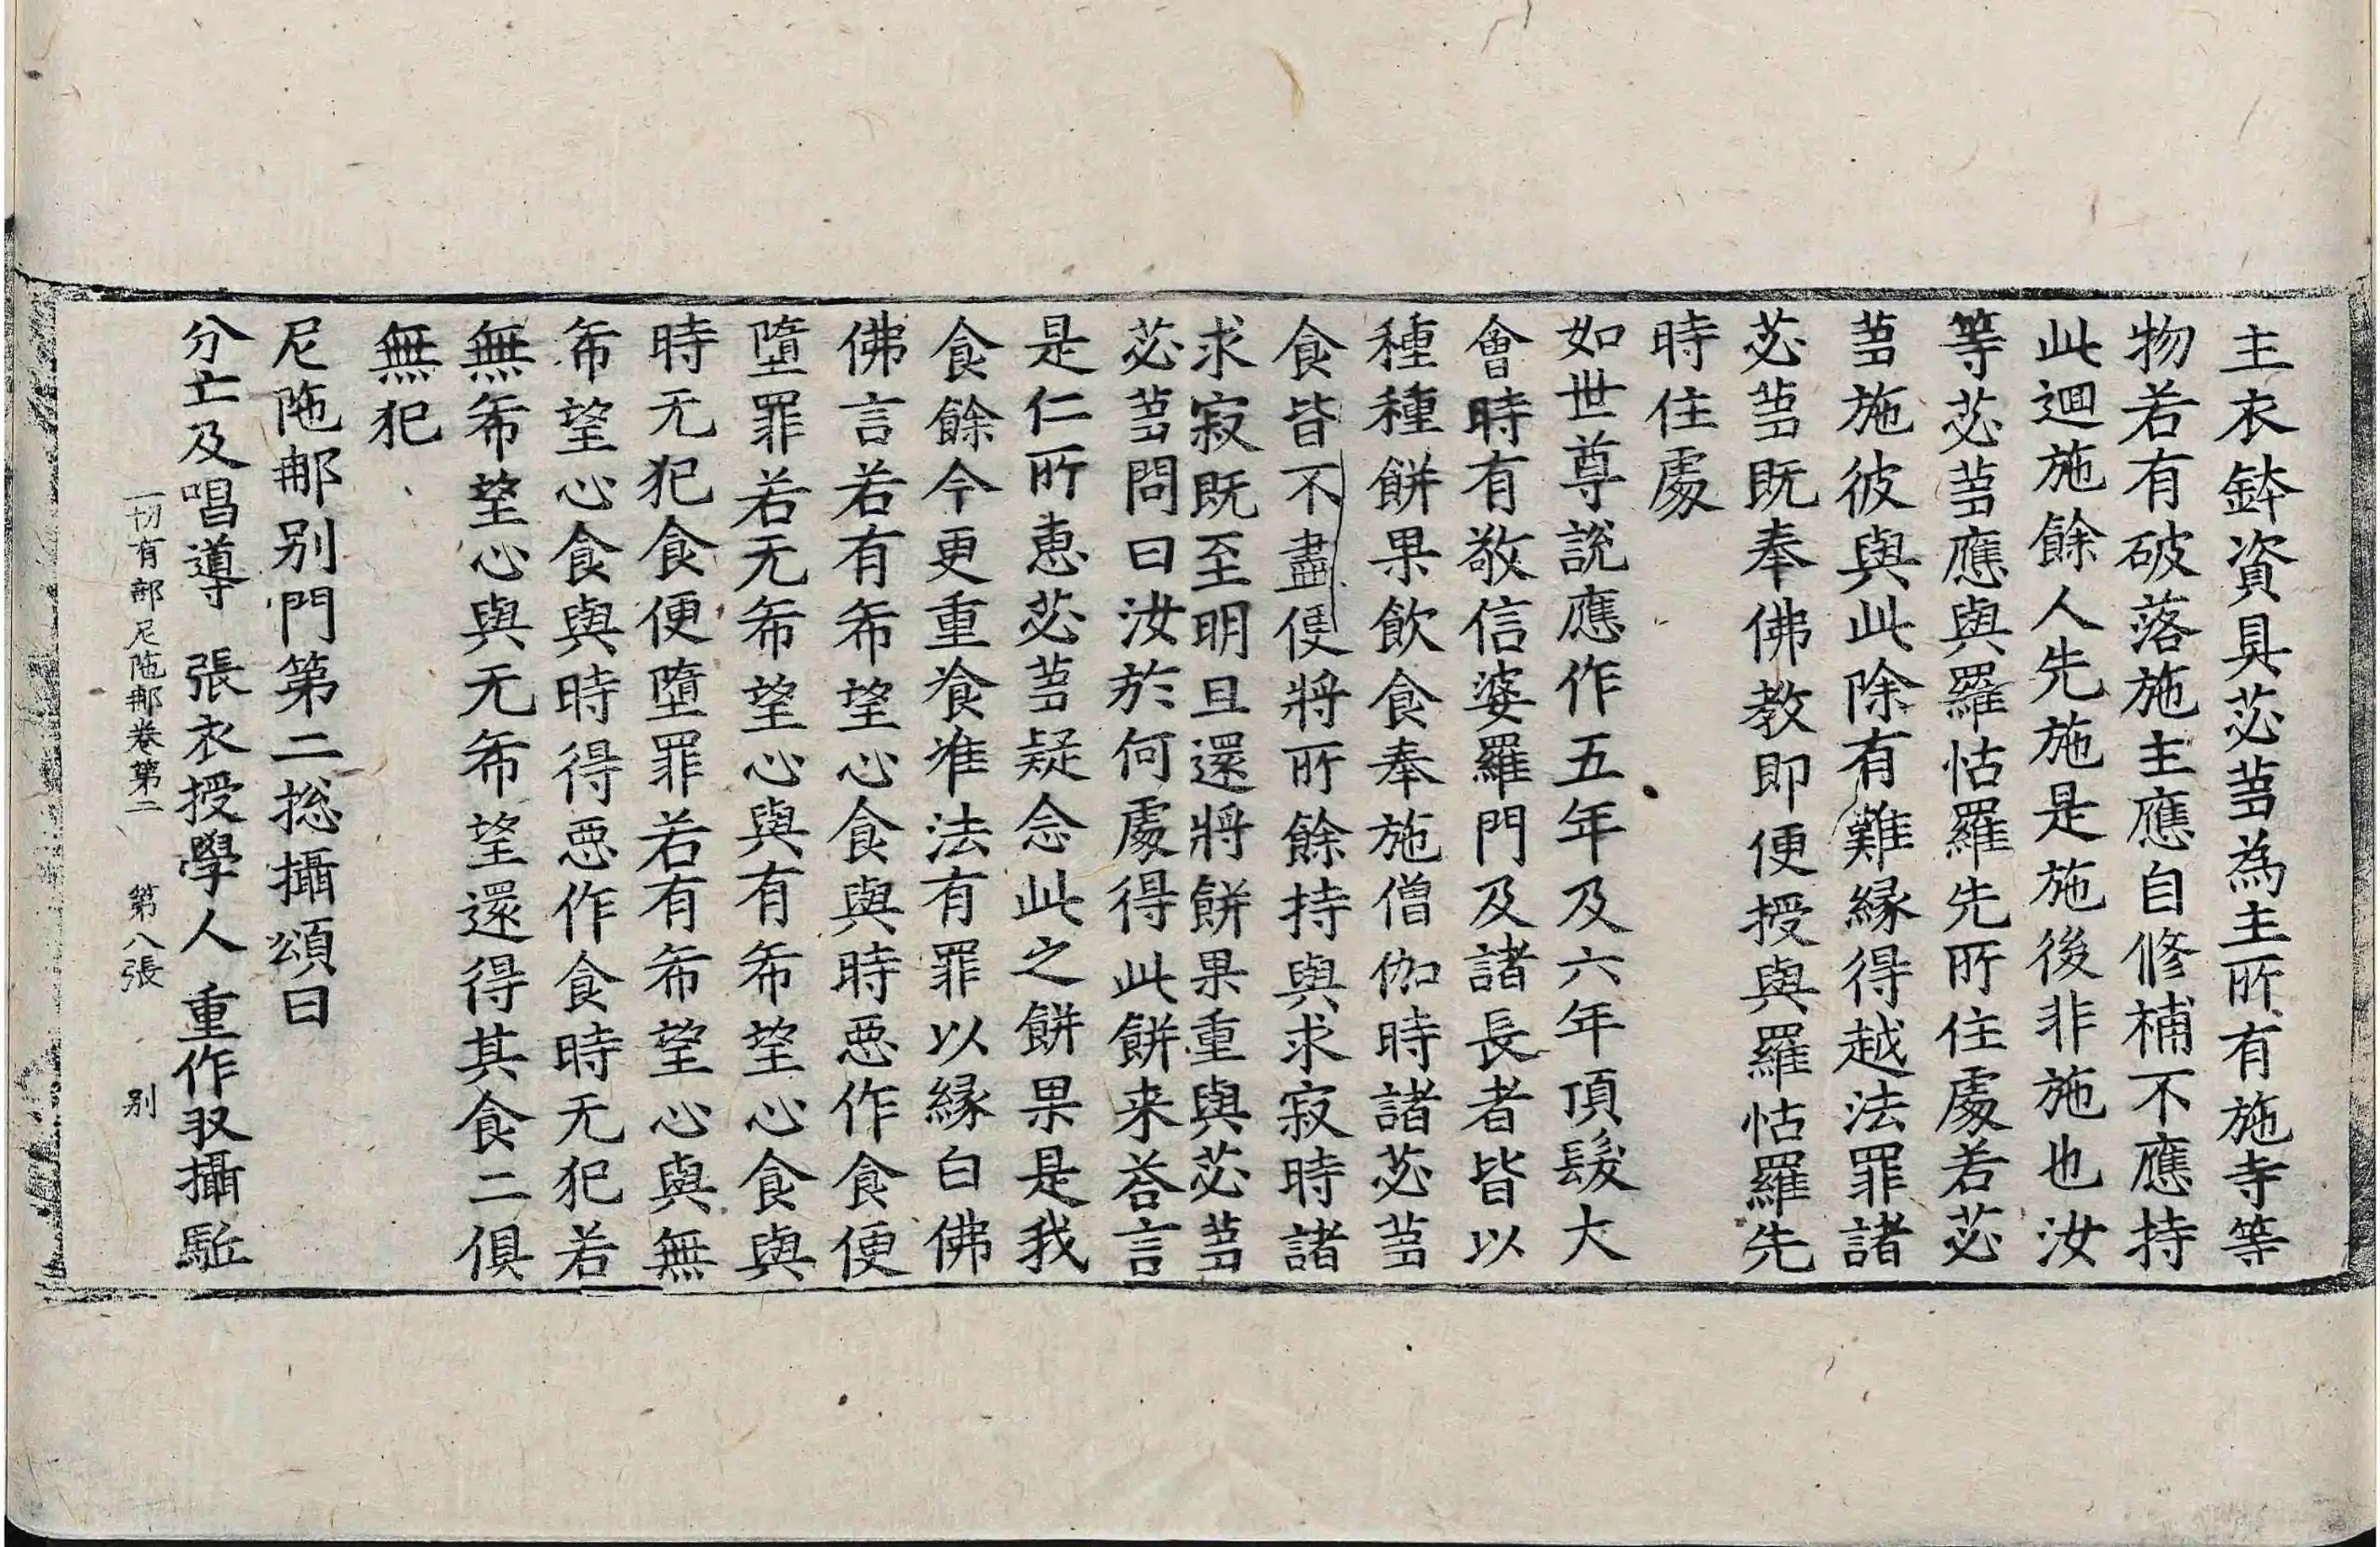 主衣鉢資具苾蒭為主所有施寺等
物若有破落施主應自修補不應持
此迴施餘人先施是施後非施也汝
等苾蒭應與羅怙羅先所住處若苾
蒭施彼與此除有難縁得越法罪諸
苾蒭既奉佛教即便授與羅怙羅先
時住處
如世尊說應作五年及六年頂髮大
會時有敬信婆羅門及諸長者皆以
種種餅果飲食奉施僧伽時諸苾蒭
食皆不盡便將所餘持與求寂時諸
求寂既至明旦還將餅果重與苾蒭
苾蒭問曰汝於何處得此餅来荅言
是仁所惠苾蒭疑念此之餅果是我
食餘今更重飡准法有罪以縁白佛
佛言若有希望心食與時悪作食便
墮罪若无希望心與有希望心食與
時无犯食便墮罪若有希望心與無
希望心食與時得悪作食時无犯若
無希望心與无希望還得其食二俱
無犯
尼陁那别門第二揔攝頌曰
分亡及唱導 張衣授學人 重作収攝駈
一切有部尼陁那卷第二 第八張 别